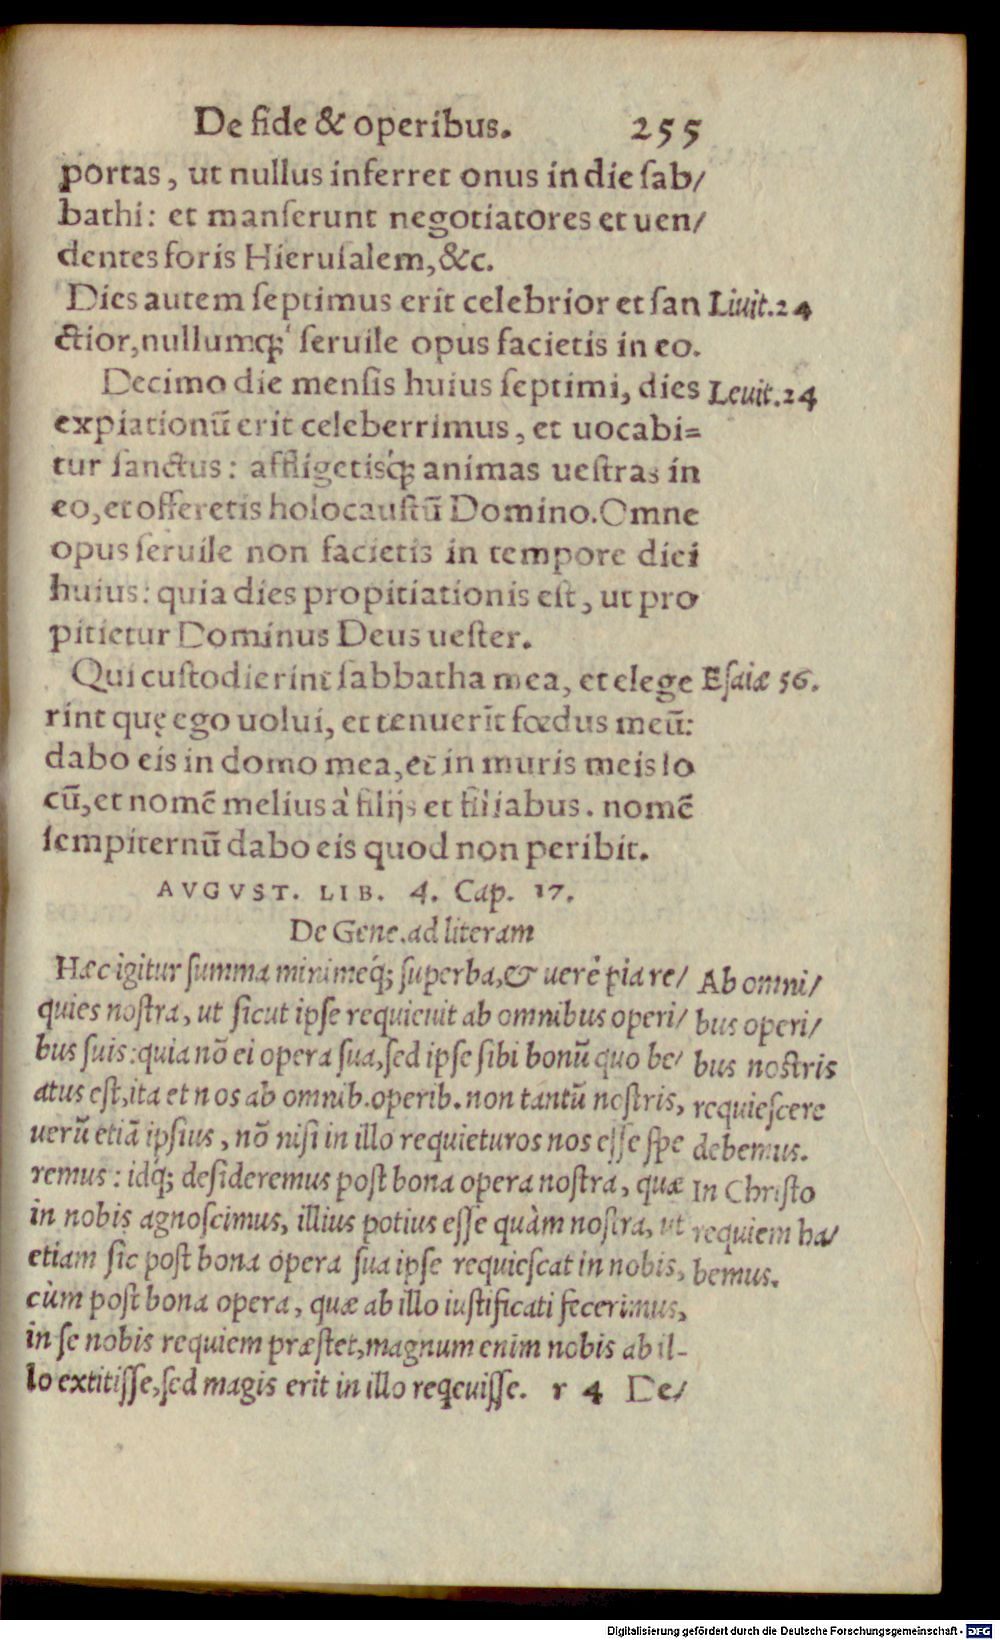 De fide & operibus. 255
portas, ut nullus inferret onus in die ſab/
bathi: et manſerunt negotiatores et uen/
dentes foris Hieruſalem, &c.
Dies autem ſeptimus erit celebrior et ſan
ctior, nullumq́; ſeruile opus facietis in eo.
Liuit. 24
Decimo die menſis huius ſeptimi, dies
expiationũ erit celeberrimus, et uocabi=
tur ſanctus: affligetisq́; animas ueſtras in
eo, et offeretis holocauſtũ Domino. Omne
opus ſeruile non facietis in tempore diei
huius: quia dies propitiationis eſt, ut pro
pitietur Dominus Deus ueſter.
Leuit. 24
Qui cuſtodierint ſabbatha mea, et elege
rint quę ego uolui, et tenuerīt fœdus meũ:
dabo eis in domo mea, et in muris meis lo
cũ, et nomẽ melius à filijs et filiabus. nomẽ
ſempiternũ dabo eis quod non peribit.
Eſaiæ 56.
AVGVST. LIB. 4. Cap. 17.
De Gene. ad literam
Hæc igitur ſumma minimeq́; ſuperba, & uerè pia re/
quies noſtra, ut ſicut ipſe requieuit ab omnibus operi/
bus ſuis: quia nõ ei opera ſua, ſed ipſe ſibi bonũ quo be/
atus eſt, ita et nos ab omnib. operib. non tantũ noſtris,
uerũ etiã ipſius, nõ niſi in illo requieturos nos eſſe ſpe
remus: idq́; deſideremus poſt bona opera noſtra, quæ
in nobis agnoſcimus, illius potius eſſe quàm noſtra, ut
etiam ſic poſt bona opera ſua ipſe requieſcat in nobis,
cùm poſt bona opera, quæ ab illo iuſtificati fecerimus,
in ſe nobis requiem præſtet, magnum enim nobis ab il-
lo extitiſſe, ſed magis erit in illo reqeuiſſe. r 4 De/
Ab omni/
bus operi/
bus noſtris
requieſcere
debemus.
In Chriſto
requiem ha/
bemus.
Digitalisierung gefördert durch die Deutsche Forschungsgemeinschaft - DFG